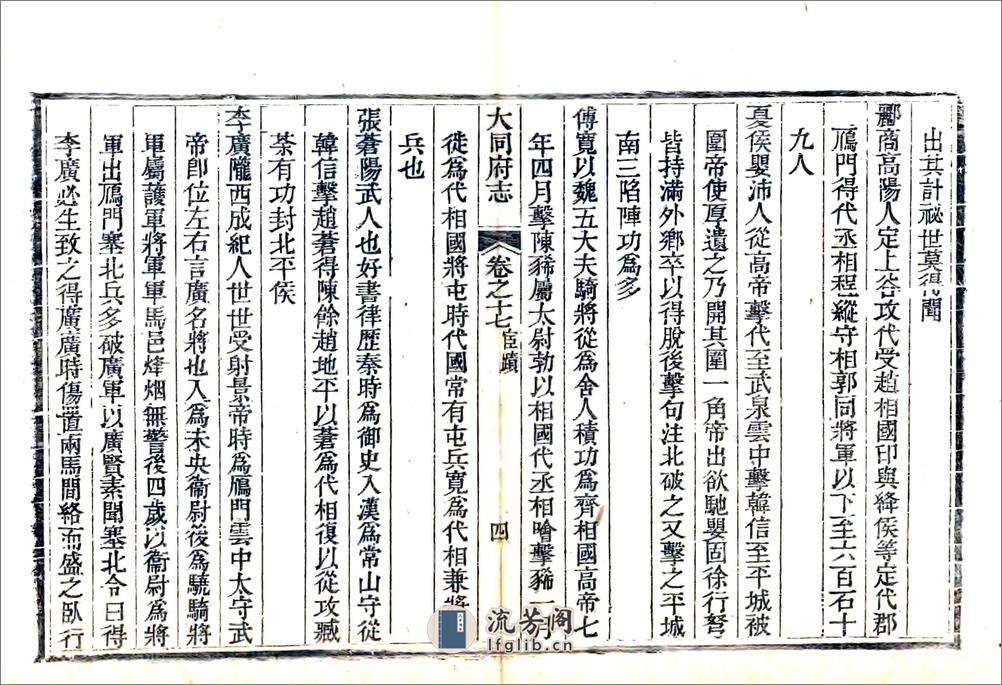 出其計祕世莫得聞
酈商高陽人定上谷攻代受趙相國印與絳侯等定代郡
鴈門得代丞相程縱守相郭同將軍以下至六百石十
九人
夏侯嬰沛人從高帝擊代至武泉雲中擊韓信至平城被
圍帝使厚遺之乃開其圍一角帝出欲馳嬰固徐行弩
皆持滿外鄉卒以得脫後擊句注北破之又擊之平城
南三陷陣功爲多
傅寬以魏五大夫騎將從爲舍人積功爲齊相國高帝七
年四月擊陳豨屬太尉勃以相國代丞相噲擊豨一月
大同府志 卷之十七 宦蹟 四
徙爲代相國將屯時代國常有屯兵寬爲代相兼將
兵也
張蒼陽武人也好書律歷秦時爲御史入漢爲常山守從
韓信擊趙蒼得陳餘趙地平以蒼爲代相復以從攻臧
荼有功封北平侯
李廣隴西成紀人世世受射景帝時爲鴈門雲中太守武
帝卽位左右言廣名將也入爲未央衞尉後爲驍騎將
軍屬護軍將軍軍馬邑烽烟無警後四歲以衞尉爲將
軍出鴈門塞北兵多破廣軍以廣賢素聞塞北令曰得
李廣必生致之得廣廣時傷置兩馬間絡而盛之臥行
流芳阁
lfglib.cn